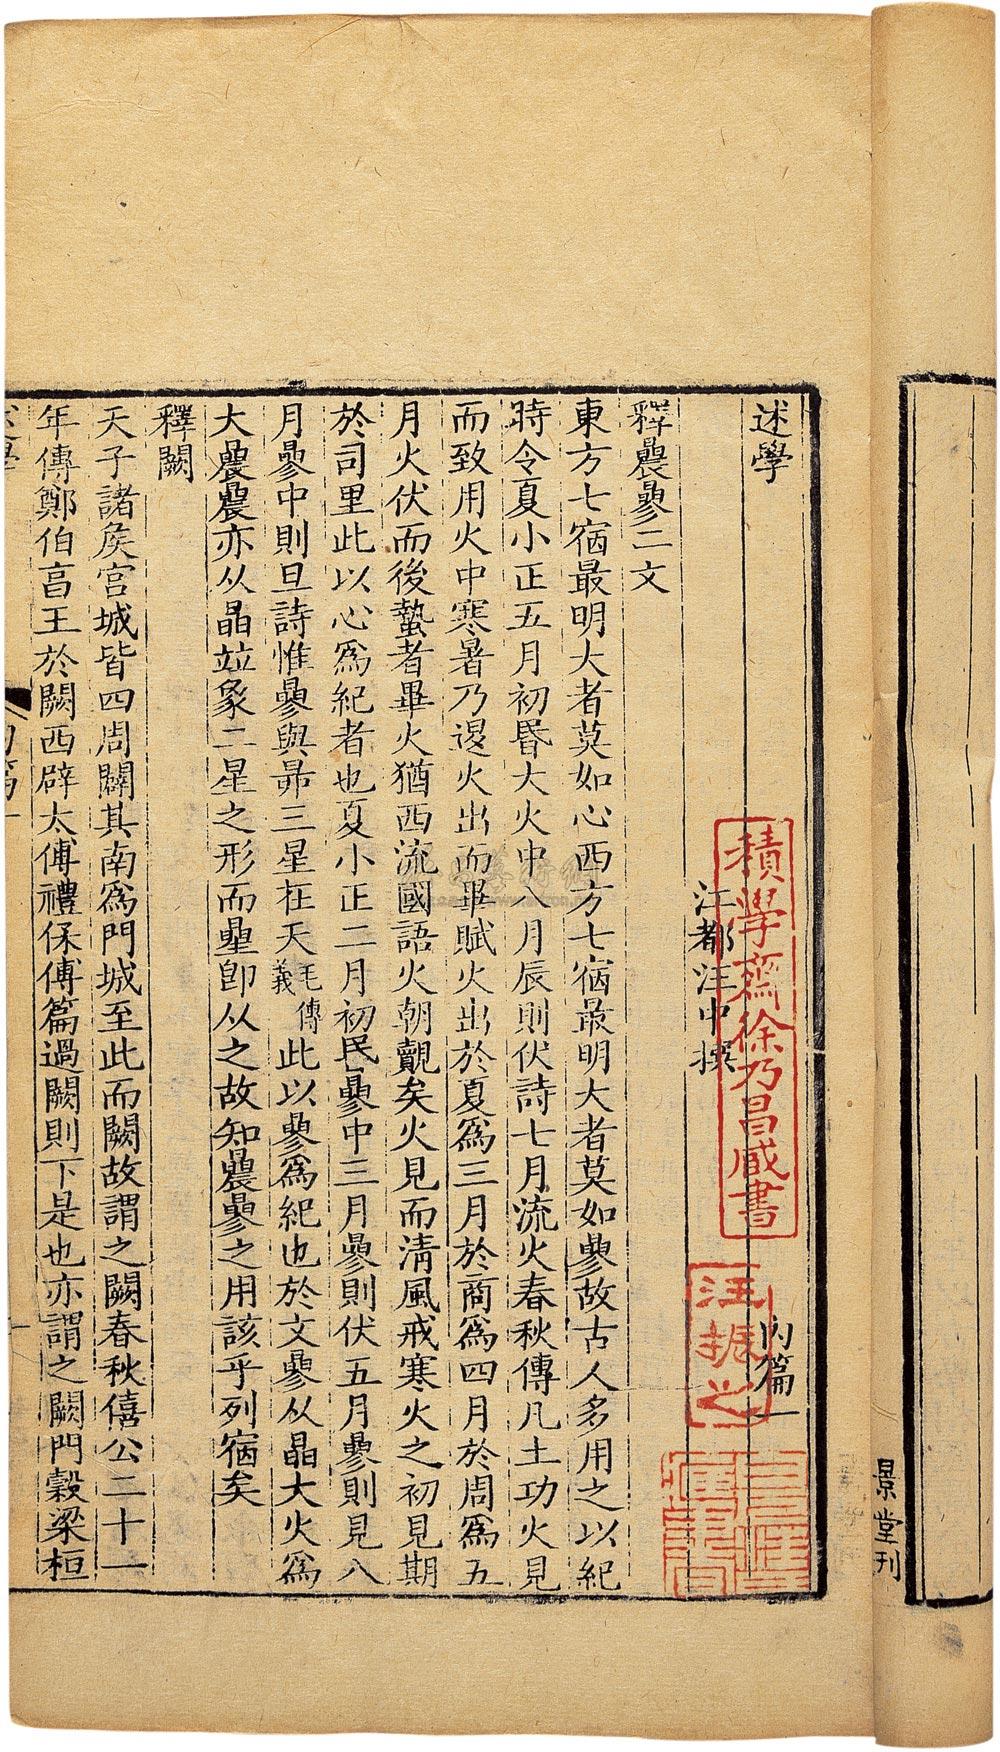 景堂刊
述學
內篇一
江都汪中撰
積學齋徐乃昌藏書
汪振之
釋曟曑二文
東方七宿最明大者莫如心西方七宿最明大者莫如曑故古人多用之以紀
時令夏小正五月初昬大火中八月辰則伏詩七月流火春秋傳凡土功火見
而致用火中寒暑乃退火出而畢賦火出於夏為三月於商為四月於周為五
月火伏而後蟄者畢火猶西流國語火朝覿矣火見而淸風戒寒火之初見期
於司里此以心為紀者也夏小正二月初民曑中三月曑則伏五月曑則見八
月曑中則旦詩惟曑與昴三星在天毛傳義此以曑為紀也於文曑从晶大火為
大曟曟亦从晶竝象二星之形而曐卽从之故知曟曑之用該乎列宿矣
釋闕
天子諸矦宮城皆四周闢其南為門城至此而闕故謂之闕春秋僖公二十一
年傳鄭伯亯王於闕西辟大傅禮保傅篇過闕則下是也亦謂之闕門穀梁桓
述學
內篇一